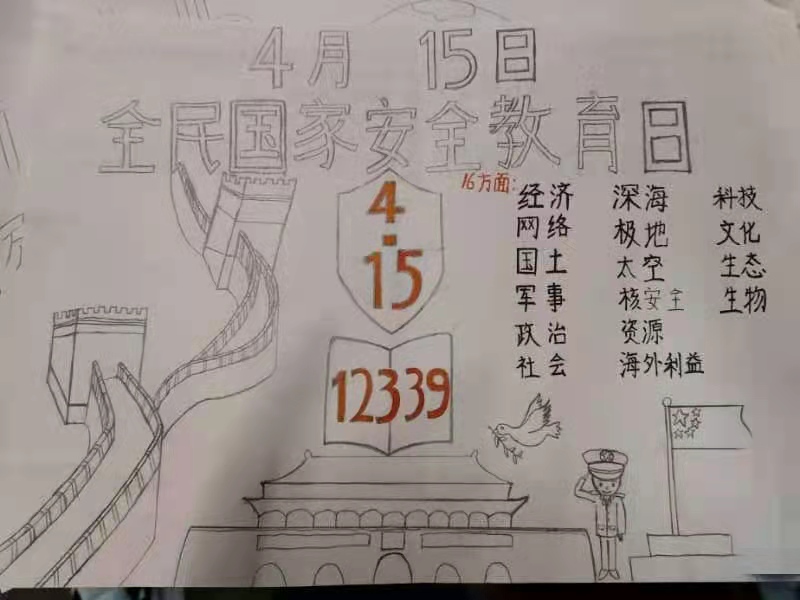 4月 15日
全民国家安全教育日
4
·
15
12339
16方面:
经济 深海 科技
网络 极地 文化
国土 太空 生态
军事 核安全 生物
政治 资源
社会 海外利益